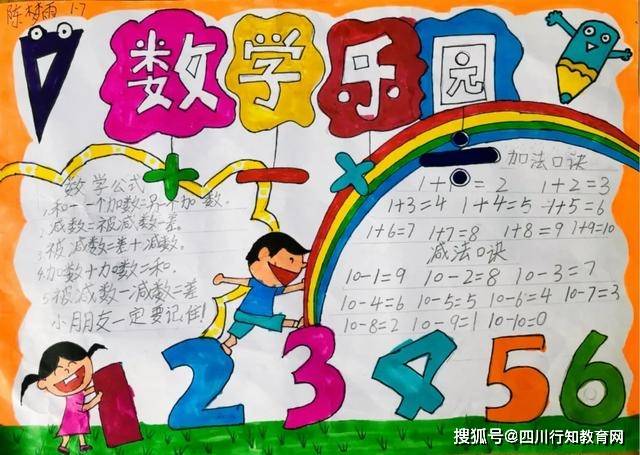 陈梦雨 1-7
数学乐园
+ − × ÷
数学公式
1.和-一个加数=另一个加数。
2.减数=被减数-差。
3.被减数=差+减数。
4.加数+加数=和.
5.被减数-减数=差
小朋友一定要记住!
加法口诀
1+1=2 1+2=3
1+3=4 1+4=5 1+5=6
1+6=7 1+7=8 1+8=9 1+9=10
减法口诀
10-1=9 10-2=8 10-3=7
10-4=6 10-5=5 10-6=4 10-7=3
10-8=2 10-9=1 10-10=0
1 2 3 4 5 6
搜狐号@四川行知教育网